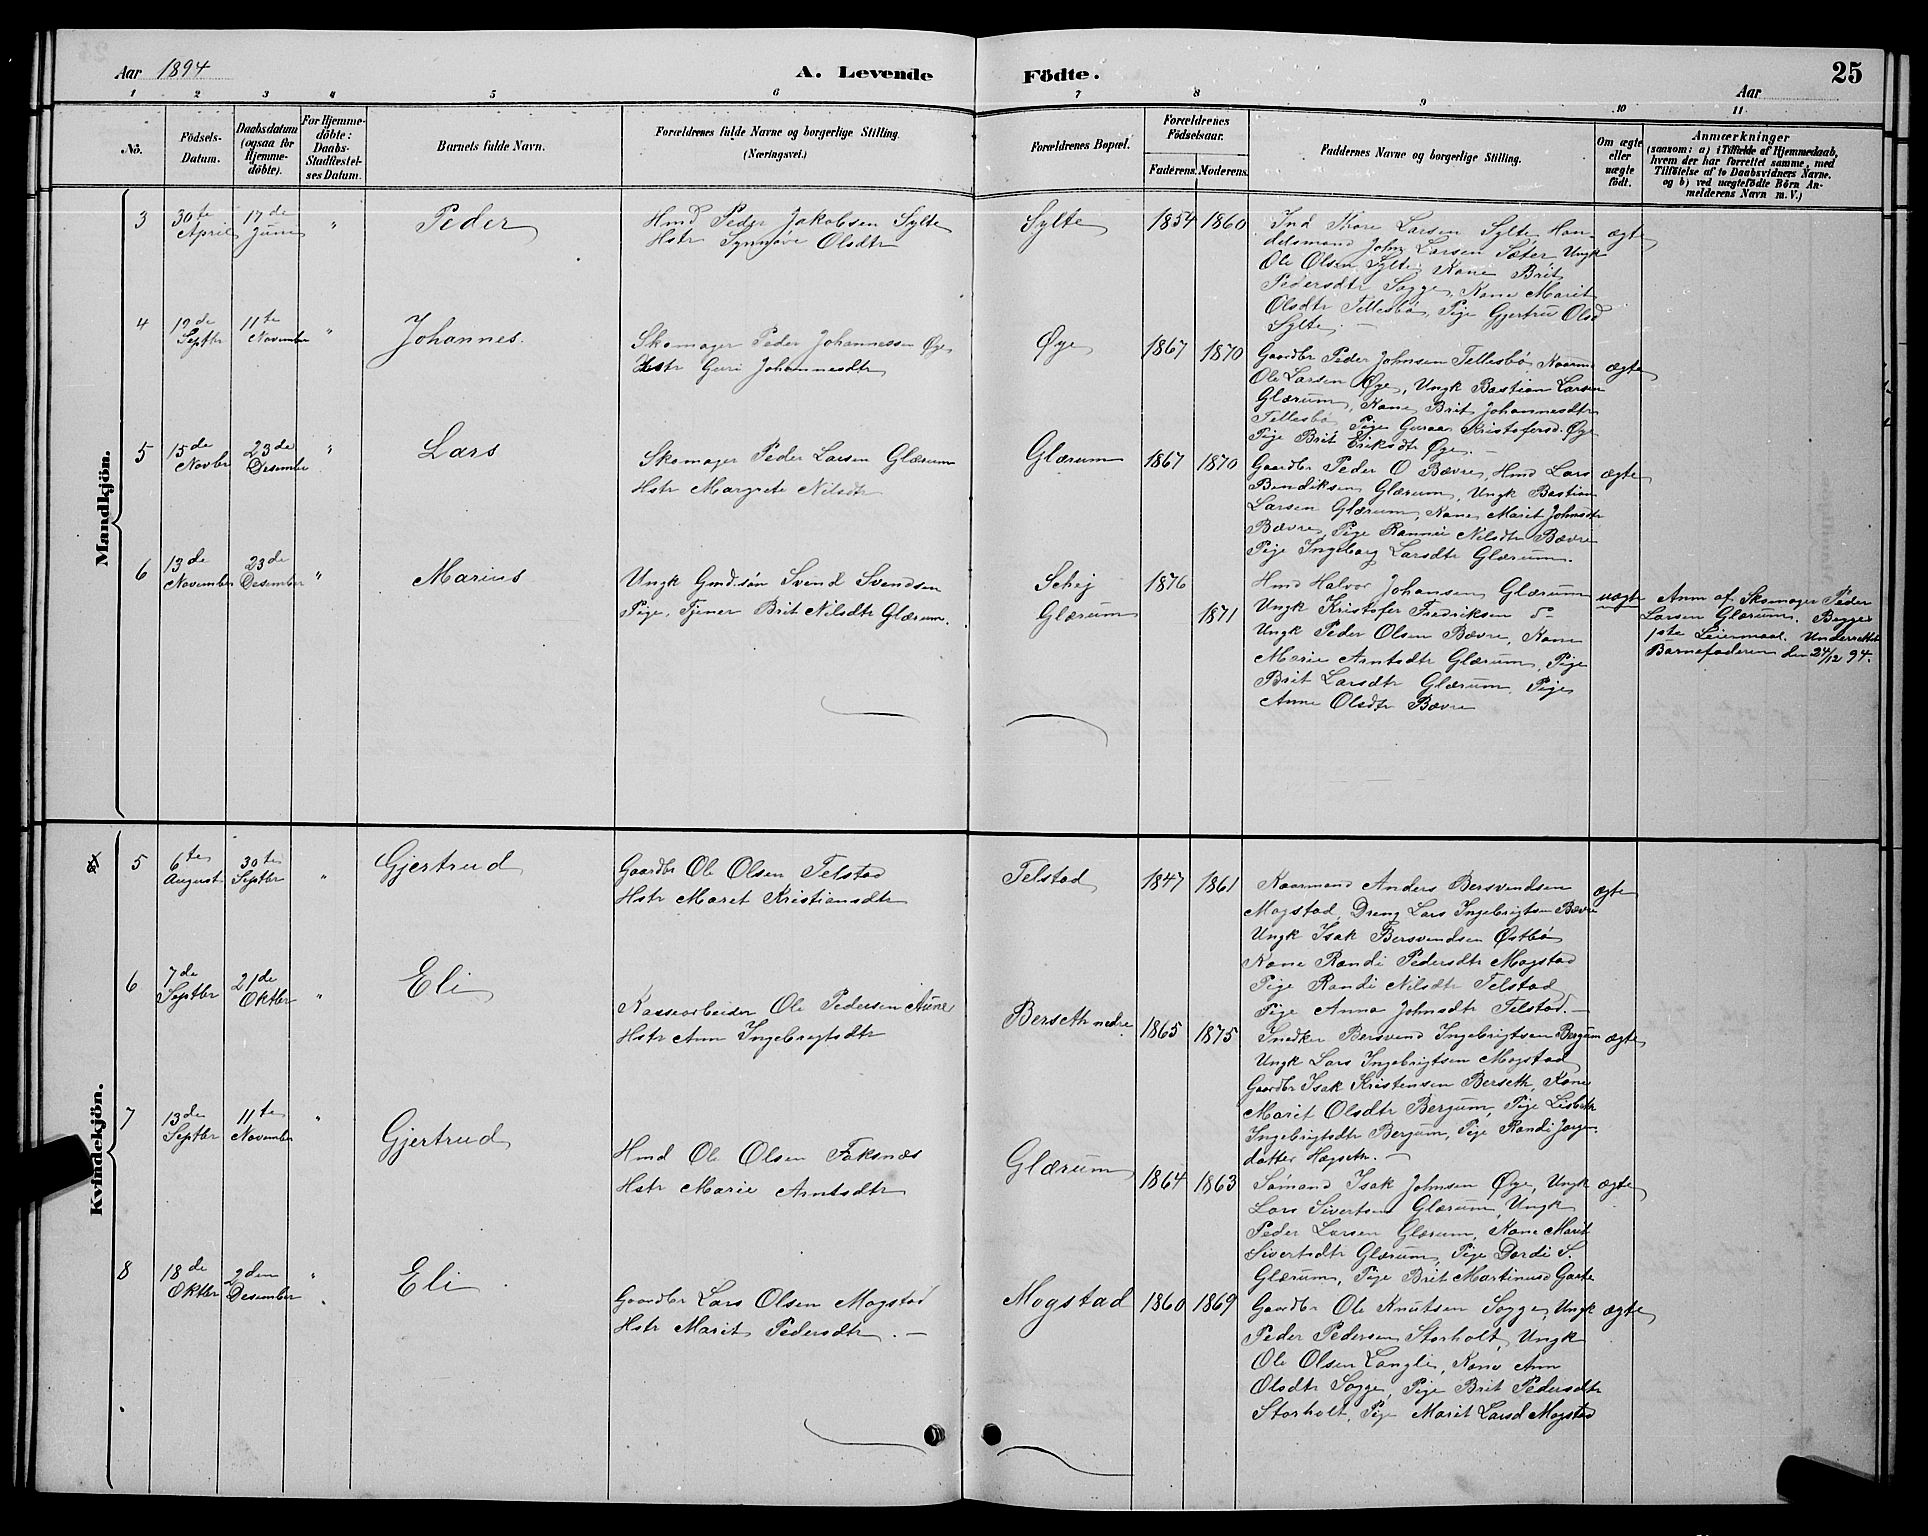 Aar 1894
A. Levende Födte.
25
Aar
1 2 3 4 5 6 7 8 9 10 11
No.
Födsels-Datum.
Daabsdatum (ogsaa for Hjemme-döbte).
For Hjemme-döbte: Daabs-Stadfæstel-ses Datum.
Barnets fulde Navn.
Forældrenes fulde Navne og borgerlige Stilling. (Næringsvei.)
Forældrenes Bopæl.
Forældrenes Födselsaar.
Faderens. Moderens.
Faddernes Navne og borgerlige Stilling.
Om ægte eller uægte födt.
Anmærkninger
(saasom: a) i Tilfælde af Hjemmedaab,
hvem der har forrettet samme, med
Tilföielse af to Daabsvidners Navne.
og b) ved uægtefödte Börn An-
melderens Navn m. V.)
Mandkjön.
3 30te April 17de Juni " Peder
Hmd Peder Jakobsen Sylte
Hstr Synnøve Olsdtr
Sylte 1854 1860
Ind Thore Larsen Sylte, Han-
delsmand John Larsen Sæter, Ungk
Ole Olsen Sylte, Kone Brit
Pedersdtr Sogge, Kone Marit
Olsdtr Tellesbø, Pige Gjertru Olsd
Sylte. —
ægte
4 19de Septbr 11te November " Johannes.
Skomager Peder Johannessen Øye
Hstr Guri Johannesdtr
Øye 1867 1870
Gaardbr Peder Johnsen Tellesbø, Kaarm
Ole Larsen Øye, Ungk Bastian Larsen
Glærum, Kone Brit Johannesdtr
Tellesbø, Pige Guraa Kristofersd. Øye
Pige Brit Eriksdtr Øye. —
ægte
5 15de Novbr 23de Desember " Lars
Skomager Peder Larsen Glærum
Hstr Margrete Nilsdtr
Glærum 1867 1870
Gaardbr Peder O Bævre, Hmd Lars
Bendiksen Glærum, Ungk Bastian
Larsen Glærum, Kone Marit Johnsdtr
Bævre, Pige Rannei Nilsdtr Bævre
Pige Ingeborg Larsdtr Glærum.
ægte
6 13de November 23de Desember " Marius
Ungk Gmd.søn Svend Svendsen
Pige, Tjener Brit Nilsdtr Glærum.
Schej 1876
Glærum 1871
Hmd Halvor Johansen Glærum
Ungk Kristofer Fredriksen do
Ungk Peder Olsen Bævre, Kone
Marie Arntsdtr Glærum, Pige
Brit Larsdtr Glærum, Pige
Anne Olsdtr Bævre
uægte
Anm af Skomager Peder
Larsen Glærum. Begges
1ste Leiermaal. Underrettet
Barnefaderen den 24/12 94.
Kvindekjön.
5 6te August 30te Septbr " Gjertrud
Gaardbr Ole Olsen Telstad
Hstr Maret Kristiansdtr
Telstad 1847 1861
Kaarmand Anders Bersvendsen
Mogstad, Dreng Lars Ingebrigtsen Bævre
Ungk Isak Bersvendsen Østbø
Kone Randi Pedersdtr Mogstad
Pige Randi Nilsdtr Telstad
Pige Anna Johnsdtr Telstad. —
ægte
6 7de Septbr 21de Oktbr " Eli
Kassearbeider Ole Pedersen Aune
Hstr Ann Ingebrigtsdtr
Berseth nedre 1865 1875
Snedker Bersvend Ingebrigtsen Bergum
Ungk Lars Ingebrigtsen Mogstad
Gaardbr Isak Kristensen Berseth, Kone
Marit Olsdtr Bergum, Pige Lisbeth
Ingebrigtsdtr Bergum, Pige Randi Jørgen-
datter Hægseth. —
ægte
7 13de Septbr 11te November " Gjertrud
Hmd Ole Olsen Faksnæs
Hstr Marie Arntsdtr
Glærum 1864 1863
Sømand Isak Johnsen Øye, Ungk
Lars Sivertsen Glærum, Ungk
Peder Larsen Glærum, Kone Marit
Sivertsdtr Glærum, Pige Dordi S.
Glærum, Pige Brit Martinusd Gaate
ægte
8 18de Oktbr 2den Desember " Eli
Gaardbr Lars Olsen Mogstad
Hstr Marit Pedersdtr. —
Mogstad 1860 1869
Gaardbr Ole Knutsen Sogge, Ungk
Peder Pedersen Storholt, Ungk
Ole Olsen Langli, Kone Ann
Olsdtr Sogge, Pige Brit Pedersdtr
Storholt, Pige Marit Larsd Mogstad
ægte